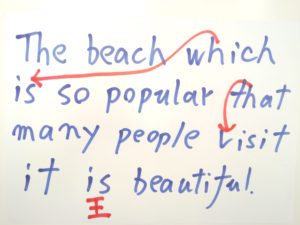 The beach which
is so popular that
many people visit
it is beautiful.
王